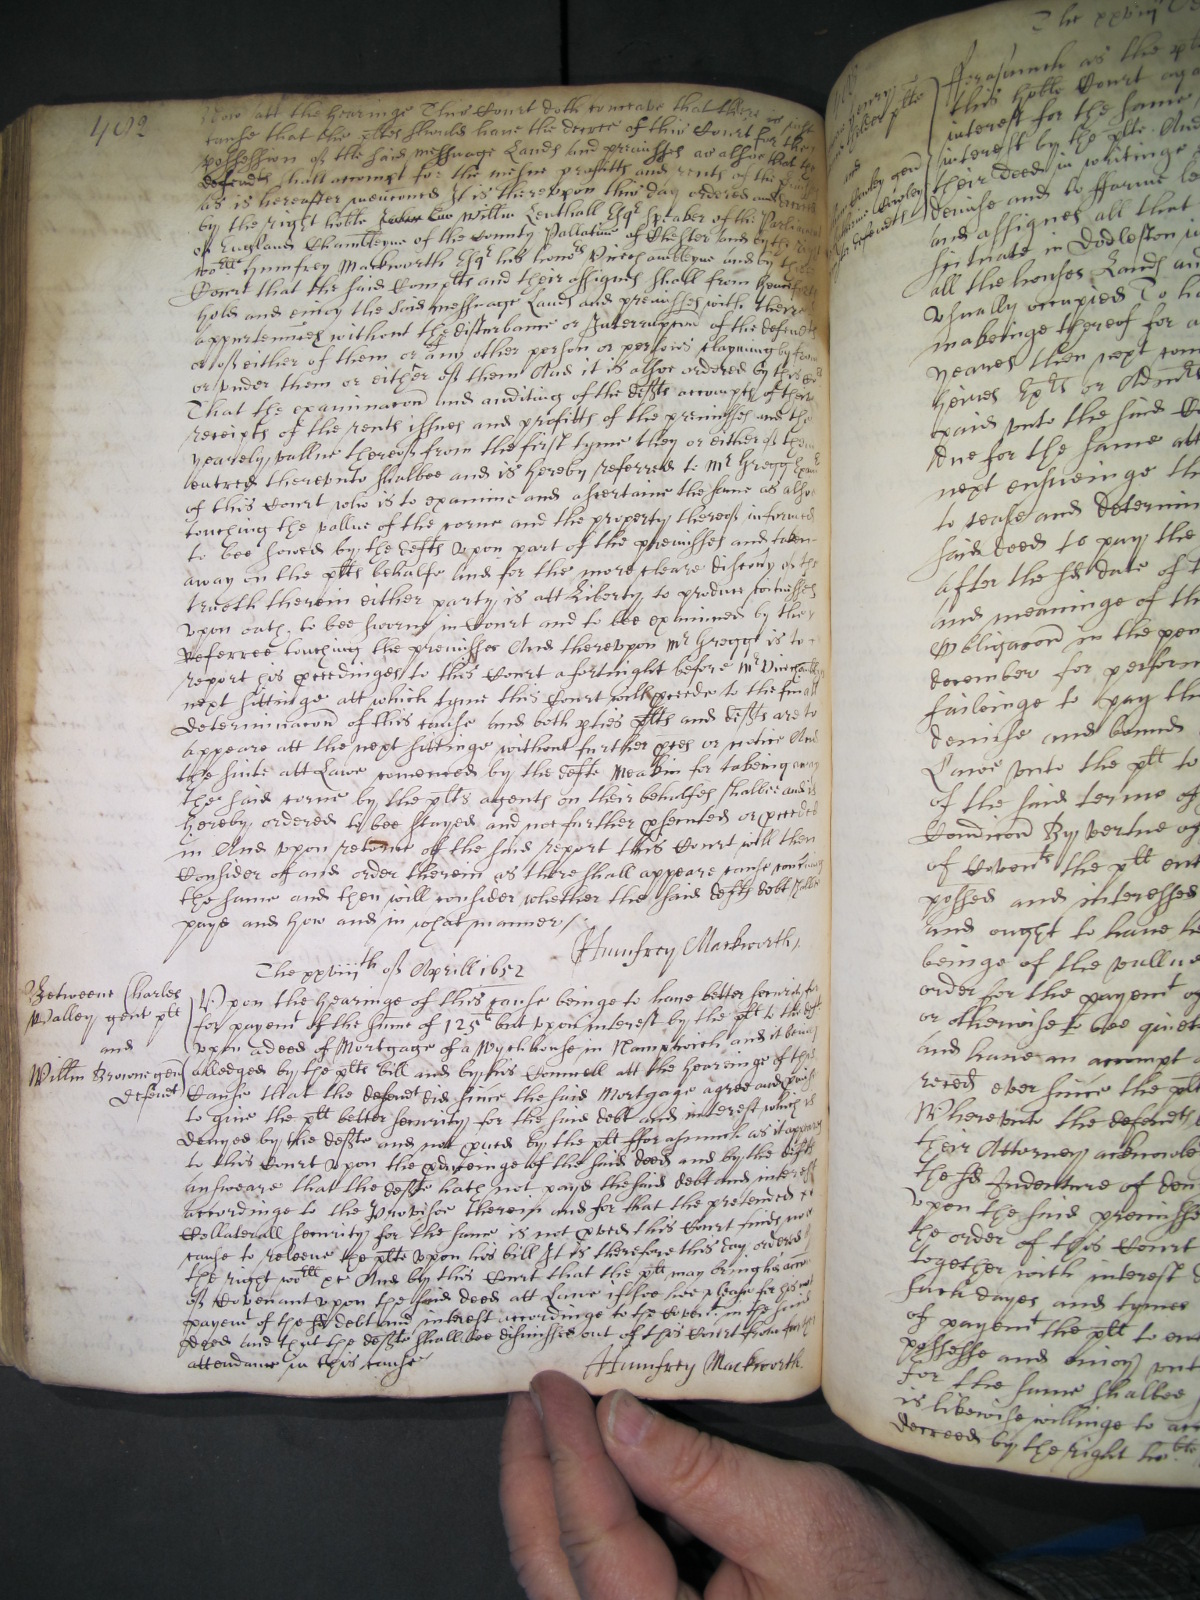 402
Now att the hearinge This Court doth conceave that there is just
cause that the plts should have the decree of this Court for the
possession of the said messuage Lands and premisses as alsoe that the
defendts shall accompt for the mesne proffitts and rents of the
as is hereafter menconed It is thereupon this day ordered and decreed
by the right hoble Willm Lenthall Esqr Speaker of the Parliamt
of England Chamberlyne of the County Pallatine of Chester and by the right
worll Humfrey Mackworth Esqr his honors Vicechamberlyne and by this
Court that the said Complts and their assignes shall from henceforth
hold and enioy the said messuage Lands and premisses with their
appurtennces without the disturbance or Interrupcon of the defendts
or of either of them or any other person or persons clayminge by from
or under them or either of them And it is alsoe ordered by this Cort
That the examinacon and auditing of the defts accompts of their
receipts of the rents issues and profitts of the premisses and the
yearely vallue thereof from the first tyme they or either of them
entred thereunto shalbee and is hereby referred to Mr Gregg Exam
of this Court who is to examine and ascertaine the same as alsoe
touching the vallue of the corne and the property thereof informed
to bee sowed by the defts upon part of the premisses and taken
away on the plts behalfe And for the more cleare discovy of the
trueth therein either party is att Liberty to produce witnesses
upon oath to bee sworne in Court and to bee examined by the
Referree touching the premisses And thereupon Mr Gregg is to
report his pceedinges to this Court a fortnight before Mr Vicechamblns
next sittinge att which tyme this Court will pceede to the finall
determinacon of this cause And both pties plts and defts are to
appeare att the next sittinge without further pces or notice And
the suite att Lawe comenced by the defte Meakin for takeing away
the said corne by the plts agents on their behalfes shalbee and is
hereby ordered to bee stayed and not further psecuted or pceeded
in And upon retorne of the said report this Court will then
Consider of and order therein as there shall appeare cause touching
the same and then will consider whether the said defts debt shalbe
payd and how and in what manner /
Humfrey Mackworth
The xxviijth of Aprill 1652
Betweene Charles
Walley gent plt
and
Willm Browne gen
defendt
Upon the hearinge of this cause beinge to have better security for
for payemt of the sume of 125li lent upon interest by the plt to the deft
upon a deed of Mortgage of a Wychhouse in Namptwich and it being
alledged by the plts bill and by his Councell att the hearinge of this
Cause that the defendt did since the said Mortgage agree and pmise
to give the plt better security for the said debt and interest which is
denyed by the defte and not pved by the plt fforasmuch as it appeares
to this Court upon the pduceinge of the said deed and by the defts
answeare that the defte hath not payd the said debt and interest
accordinge to the Provisoe therein and for that the pretended
Collaterall security for the same is not pved this Court finds noe
cause to releeve the plte upon his bill It is therefore this day ordered by
the right worll etc And by this Court that the plt may bring his accon
of Covenant upon the said deed att Lawe if hee soe please for his
payemt of the sd debt and interest accordinge to the Covent in the said
deed And that the defte shall bee dismissed out of this Court from further
attendance in this cause
Humfrey Mackworth
The xxviij
fforasmuch as the
this hoble Court
interest for the same
interest by the plte And
their deed in writinge
demise and to ffarme
and assignes all that
scituate in Dodleston
all the houses Lands and
usually occupied To
makeinge thereof for
yeares then next
heires Exrs or Admrs
paid unto the said
due for the same att
next ensueinge the
to cease and determin
said deed to pay the
after the sd date of
and meaninge of th
Obligacon in the pen
december for perform
faileinge to pay the
demise and bound
Lawe unto the plt to
of the said terme of
Condicon By vertue of
of Covents the plt ent
possed and interessed
and ought to have
beinge of the vallue
order for the payemt of
or otherwise to bee quiet
and have an accompt
receed ever since the plt
Whereunto the defendts
their Attorney acknowle
the sd Indenture of dem
upon the said premisses
the order of this Court
together with interest
such dayes and tymes
of payemt the plt to ent
possesse and enioy
for the same shalbee
is likewise willinge to
decreed by the right hoble